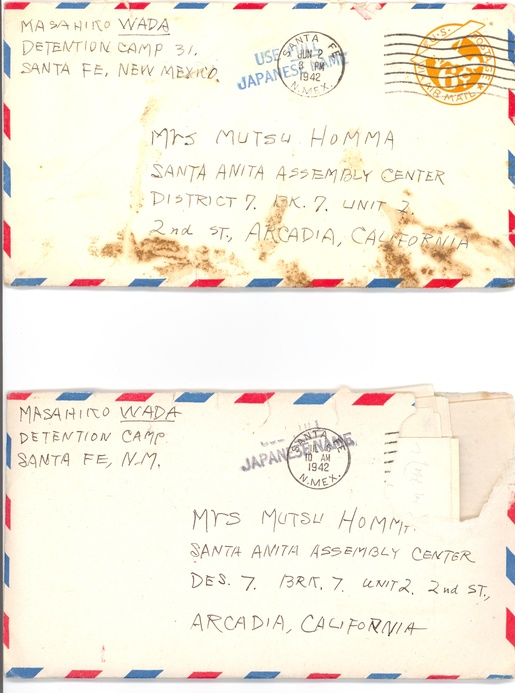 MASAHIKO WADA
DETENTION CAMP 31.
SANTA FE, NEW MEXICO.
USE FULL
JAPANESE NAME
SANTA FE
JUN 2
8 PM
1942
N. MEX.
U.S. POSTAGE
6c
AIR MAIL
Mrs MUTSU HOMMA
SANTA ANITA ASSEMBLY CENTER
DISTRICT 7. BK. 7. UNIT 2.
2nd ST., ARCADIA, CALIFORNIA
MASAHIKO WADA
DETENTION CAMP
SANTA FE, N.M.
JAPANESE NAME
SANTA FE
10 AM
1942
N. MEX.
Mrs MUTSU
SANTA ANITA ASSEMBLY CENTER
DES. 7. BRK. 7. UNIT 2. 2nd ST.,
ARCADIA, CALIFORNIA